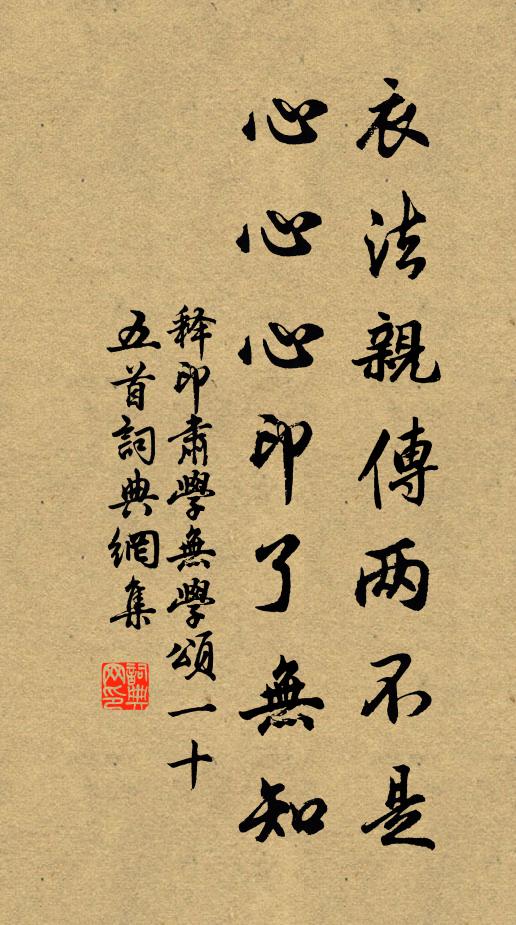 衣法親傳两不是
心心心印了無知
释印肅學無學頌一十
五首詞典網集
詞典
网印